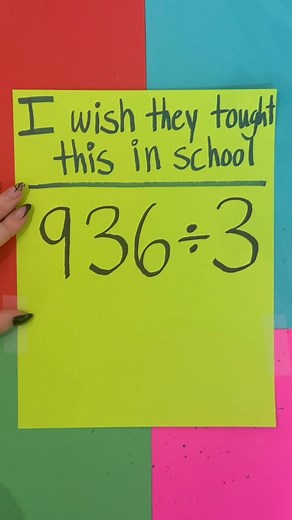 I wish they tought
this in school
936÷3